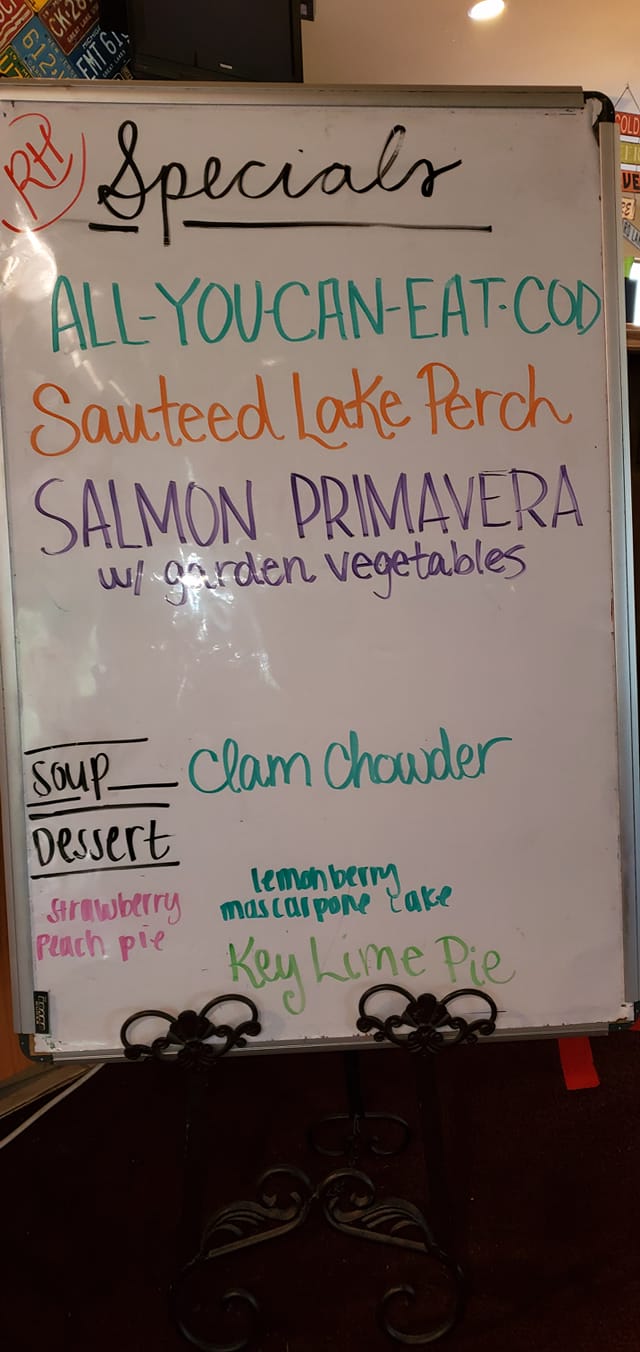 CK26
612
EMT 6
RH
Specials
ALL-YOU-CAN-EAT-COD
Sauteed Lake Perch
SALMON PRIMAVERA
w/ garden vegetables
Soup
Clam Chowder
Dessert
lemonberry
mascarpone cake
strawberry
Peach pie
Key Lime Pie
COLD